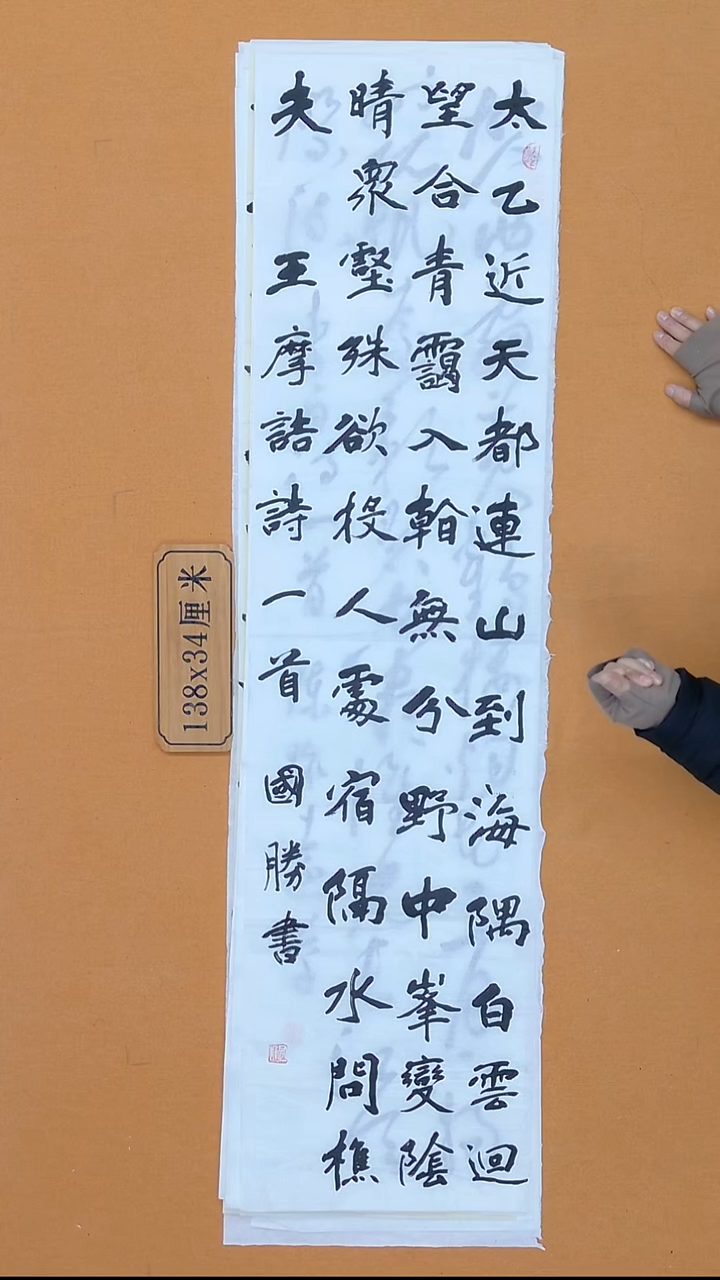 太乙近天都連山到海隅白雲迴
望合青靄入看無分野中峯變陰
晴衆壑殊欲投人處宿隔水問樵
夫 王摩詰詩一首 國勝書
138x34厘米